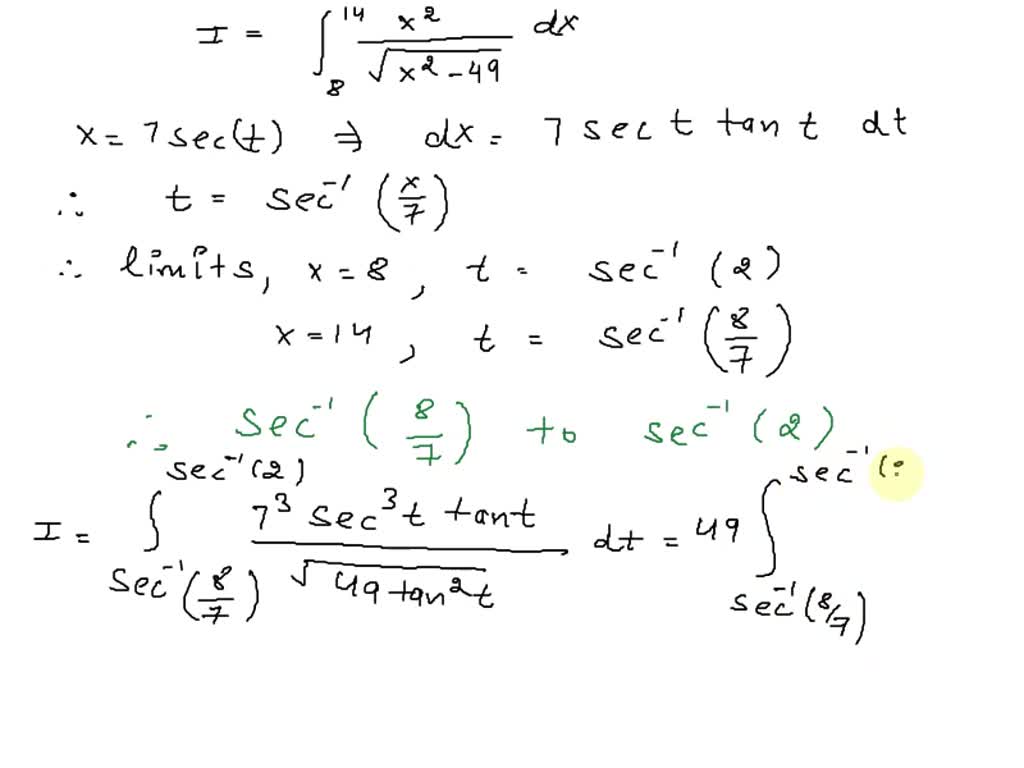 I = ∫₈¹⁴ x²/√(x²-49) dx
x = 7 sec(t) ⇒ dx = 7 sec t tan t dt
∴ t = sec⁻¹(x/7)
∴ limits, x = 8, t = sec⁻¹(2)
x = 14, t = sec⁻¹(8/7)
∴ sec⁻¹(8/7) to sec⁻¹(2)
I = ∫_{sec⁻¹(8/7)}^{sec⁻¹(2)} 7³ sec³t tant/√(49tan²t) dt = 49 ∫_{sec⁻¹(8/7)}^{sec⁻¹(}